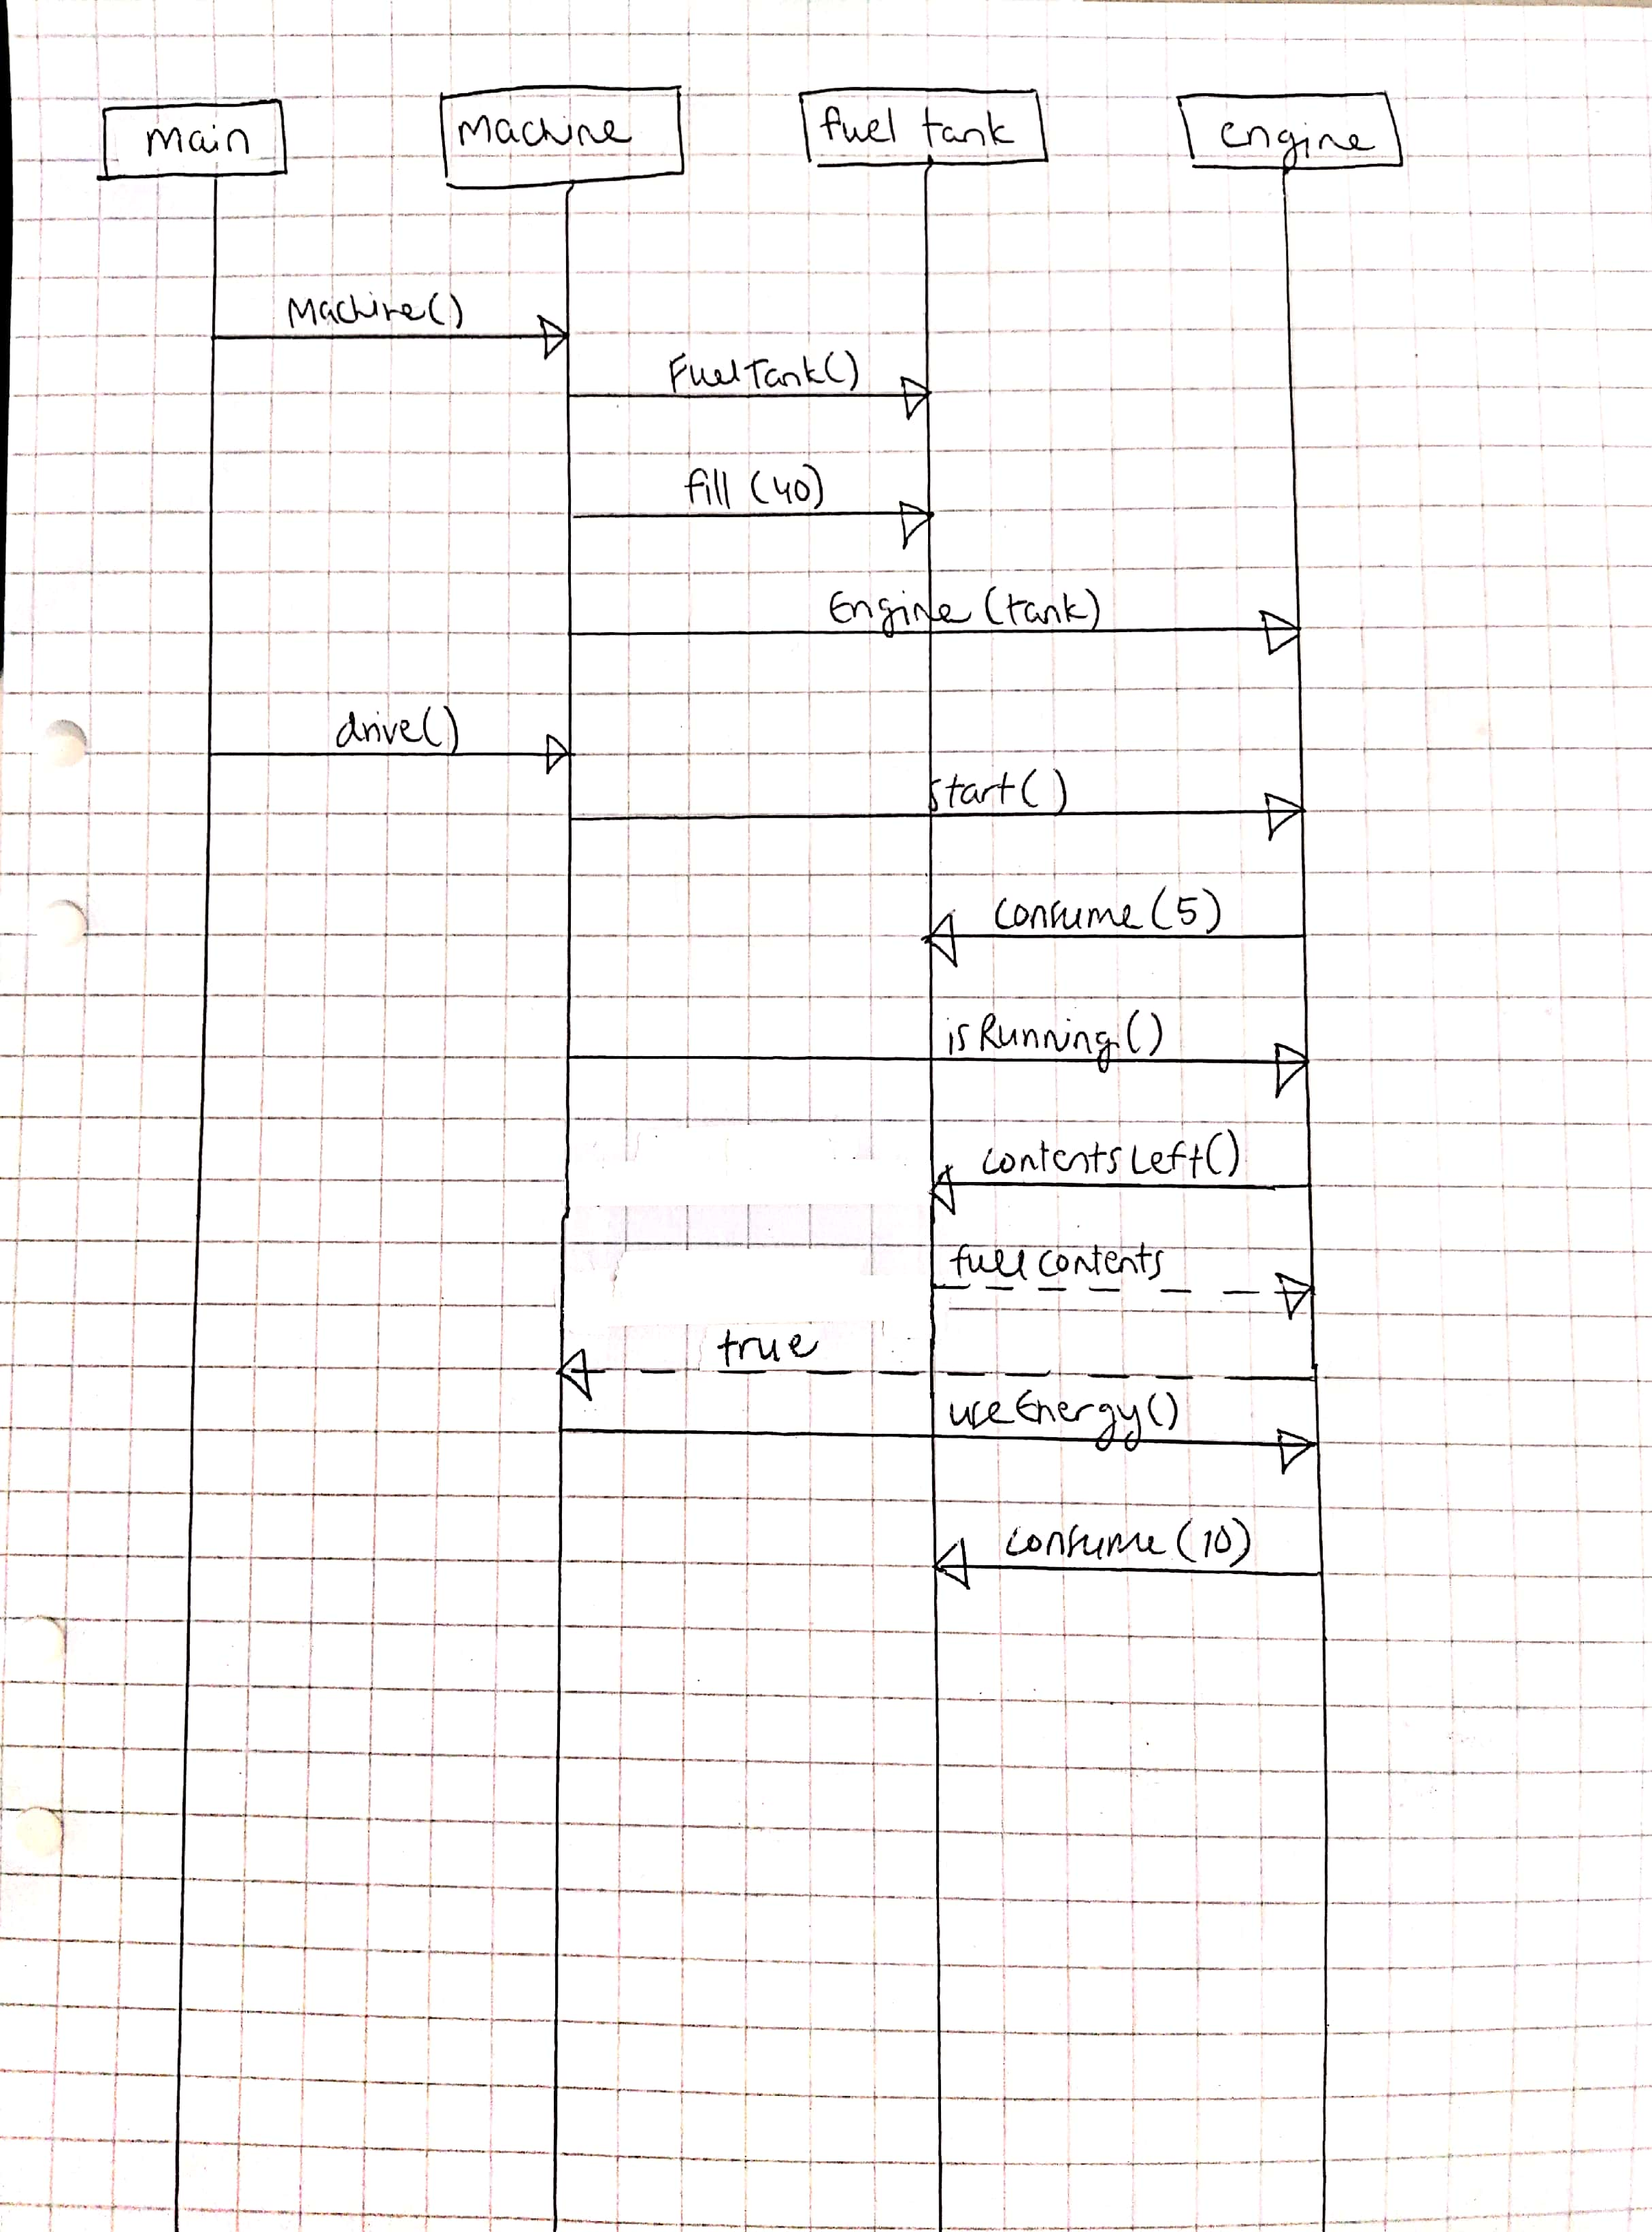 main
Machine
fuel tank
engine
Machine()
FuelTank()
fill (40)
Engine (tank)
drive()
start()
consume (5)
isRunning()
contentsLeft()
fuelcontents
true
useEnergy()
consume (10)